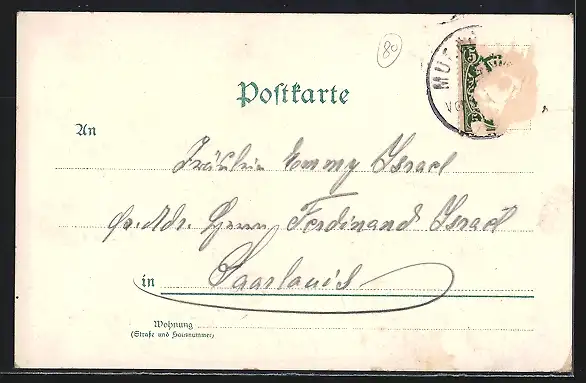 80
5
MU
Vor
Postkarte
An
Fräulein Emmy Israel
pr. Adr. Herrn Ferdinand Israel
in Saarlouis
Wohnung
(Straße und Hausnummer)